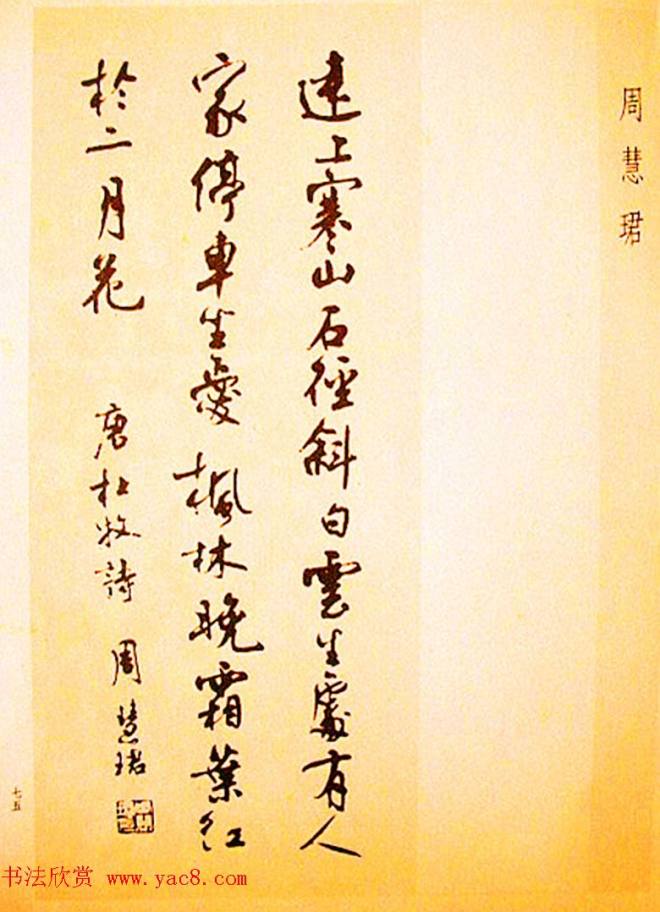 周慧珺
遠上寒山石徑斜白雲生處有人
家停車坐愛楓林晚霜葉紅
於二月花 唐杜牧詩 周慧珺
七五
书法欣赏 www.yac8.com